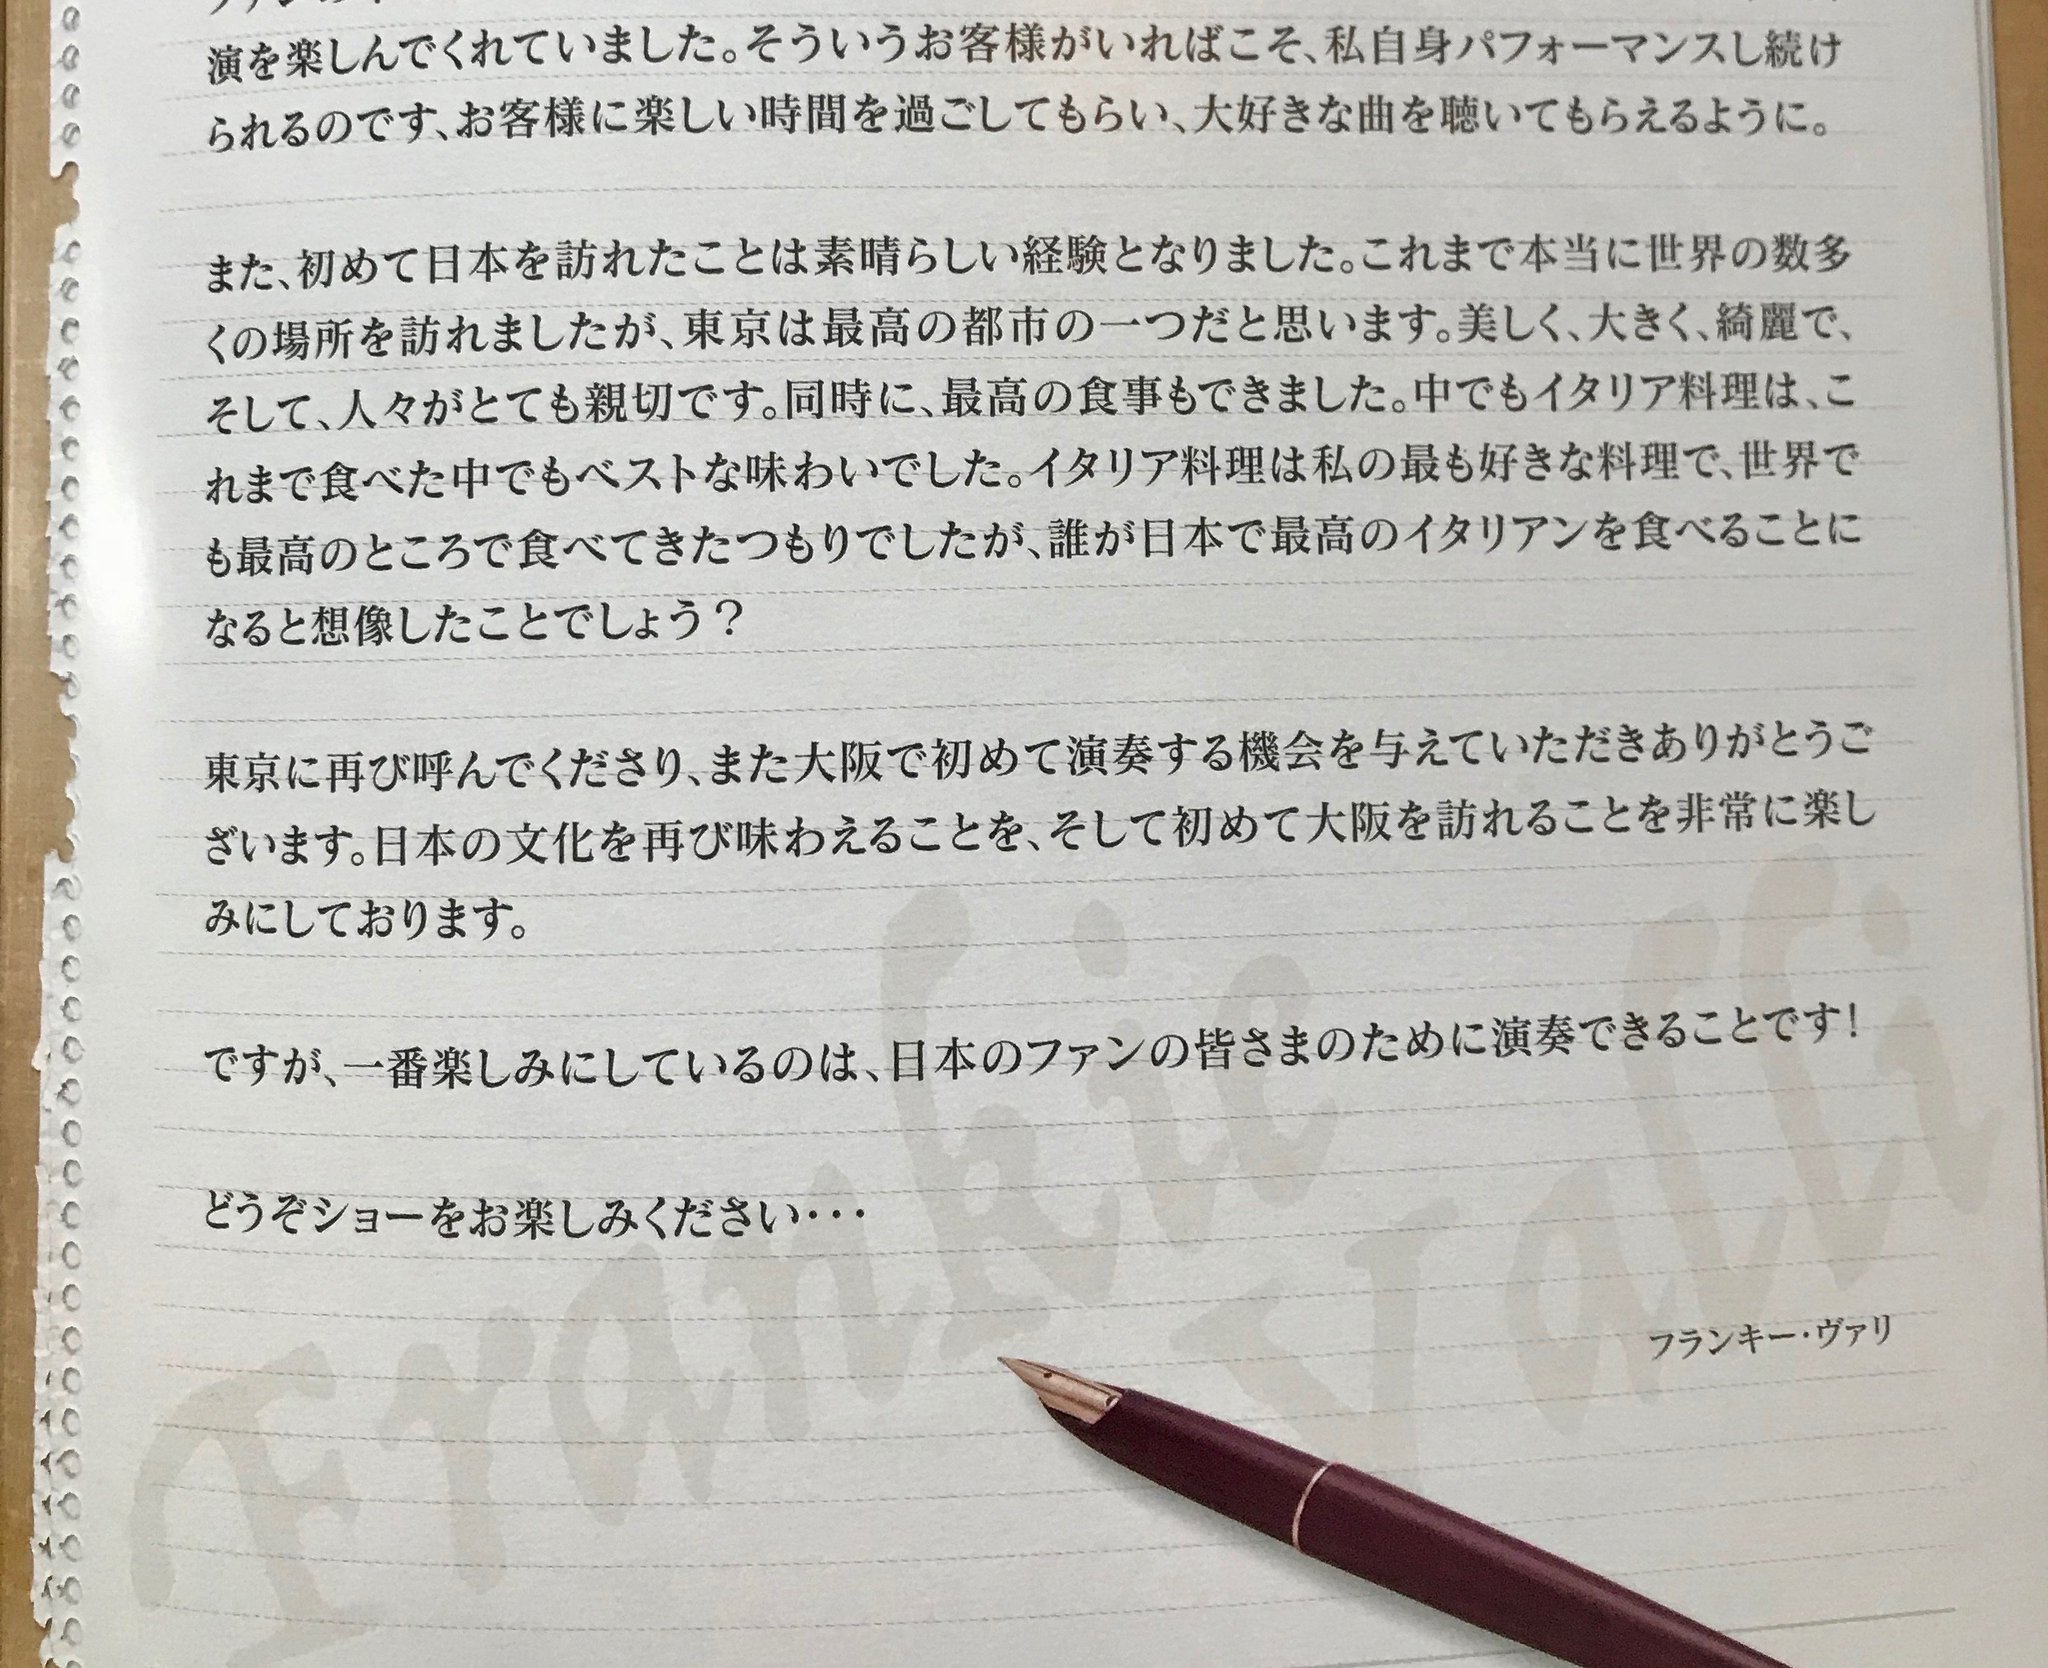 演を楽しんでくれていました。そういうお客様がいればこそ、私自身パフォーマンスし続け
られるのです、お客様に楽しい時間を過ごしてもらい、大好きな曲を聴いてもらえるように。
また、初めて日本を訪れたことは素晴らしい経験となりました。これまで本当に世界の数多
くの場所を訪れましたが、東京は最高の都市の一つだと思います。美しく、大きく、綺麗で、
そして、人々がとても親切です。同時に、最高の食事もできました。中でもイタリア料理は、こ
れまで食べた中でもベストな味わいでした。イタリア料理は私の最も好きな料理で、世界で
も最高のところで食べてきたつもりでしたが、誰が日本で最高のイタリアンを食べることに
なると想像したことでしょう？
東京に再び呼んでくださり、また大阪で初めて演奏する機会を与えていただきありがとうご
ざいます。日本の文化を再び味わえることを、そして初めて大阪を訪れることを非常に楽し
みにしております。
ですが、一番楽しみにしているのは、日本のファンの皆さまのために演奏できることです！
どうぞショーをお楽しみください・・・
フランキー・ヴァリ
Frankie Valli